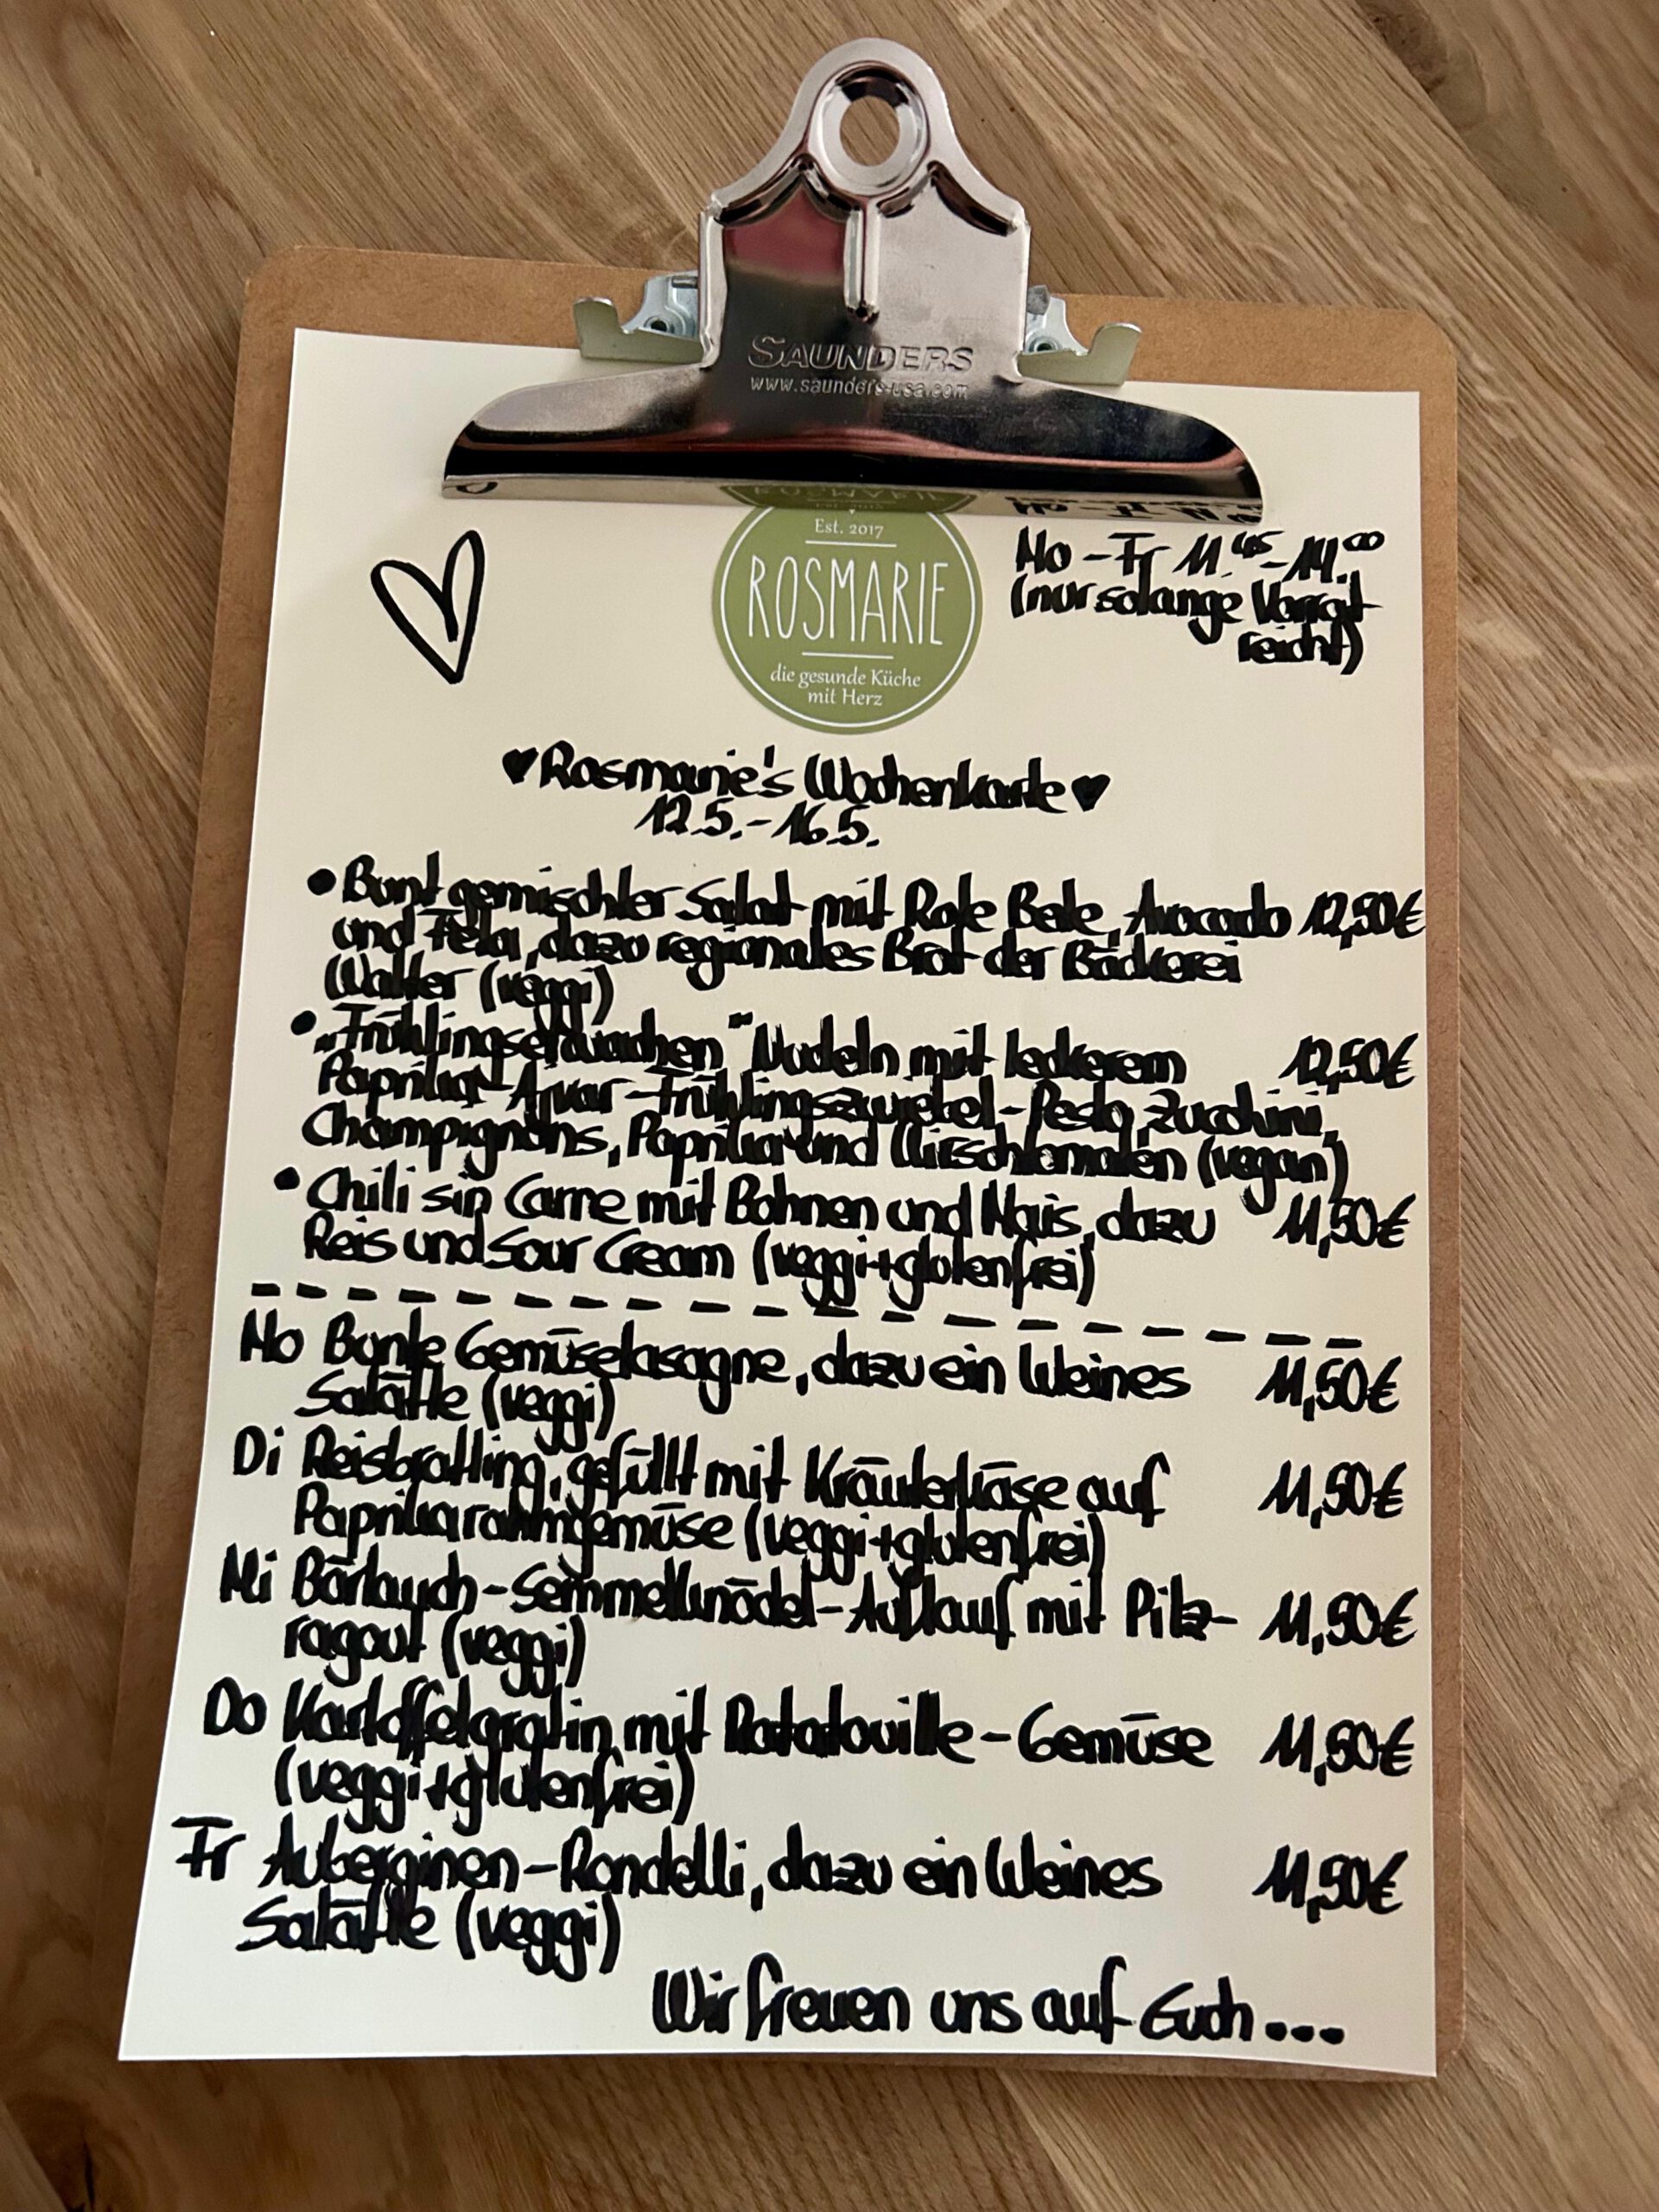 SAUNDERS
www.saunders-usa.com
Est. 2017
ROSMARIE
die gesunde Küche
mit Herz
Mo - Fr 11.45 - 14.00
(nur solange Vorrat
reicht)
♥Rosmarie's Wochenkarte♥
12.5. - 16.5.
• Bunt gemischter Salat mit Rote Bete, Avocado 12,50€
und Feta, dazu regionales Brot der Bäckerei
Walter (veggi)
• „Frühlingserwachen" Nudeln mit leckerem 12,50€
Paprika-Ajvar-Frühlingszwiebel-Pesto, Zucchini,
Champignons, Paprika und Kirschtomaten (vegan)
• Chili sin Carne mit Bohnen und Mais, dazu 11,50€
Reis und Sour Cream (veggi+glutenfrei)
Mo Bunte Gemüselasagne, dazu ein kleines 11,50€
Salätle (veggi)
Di Reisbratling, gefüllt mit Kräuterkäse auf 11,50€
Paprikarahmgemüse (veggi+glutenfrei)
Mi Bärlauch-Semmelknödel-Auflauf mit Pilz- 11,50€
ragout (veggi)
Do Kartoffelgratin mit Ratatouille-Gemüse 11,50€
(veggi+glutenfrei)
Fr Auberginen-Rondelli, dazu ein kleines 11,50€
Salätle (veggi)
Wir freuen uns auf Euch...